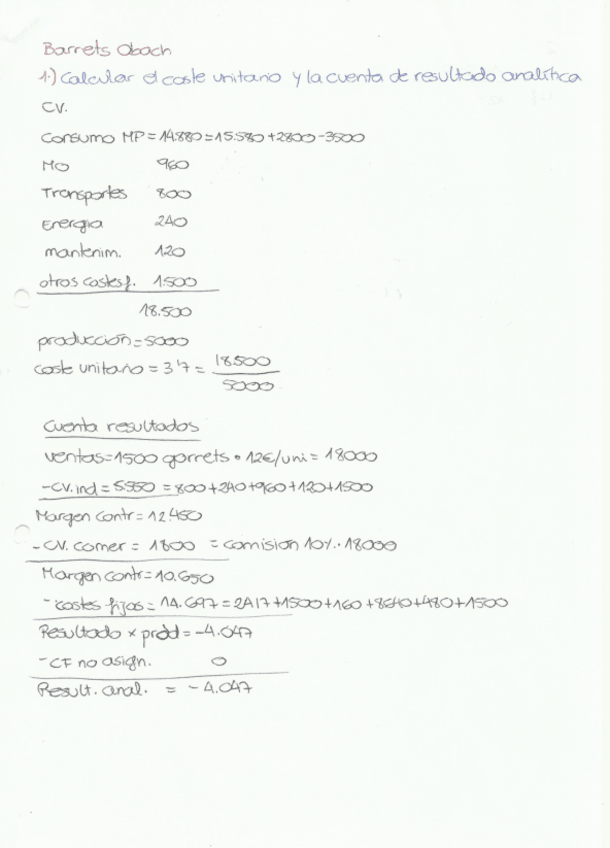 Barrets Obach
1.) Calcular el coste unitario y la cuenta de resultado analítica
CV.
Consumo MP = 14.880 = 15.580 + 2800 - 3500
MO 960
Transportes 800
Energia 240
mantenim. 120
otros costes f. 1.500
18.500
producción = 5000
coste unitario = 3'7 = 18.500
5000
Cuenta resultados
ventas = 1500 gorrets · 12€/uni = 18000
- CV. ind = 5.550 = 800 + 240 + 960 + 120 + 1500
Margen contr = 12.450
- CV. comer = 1800 = comision 10%. 18000
Margen contr = 10.650
- costes fijos = 14.697 = 2417 + 1500 + 160 + 8640 + 480 + 1500
Resultado x prod = -4.047
- CF no asign. 0
Result. anal. = -4.047